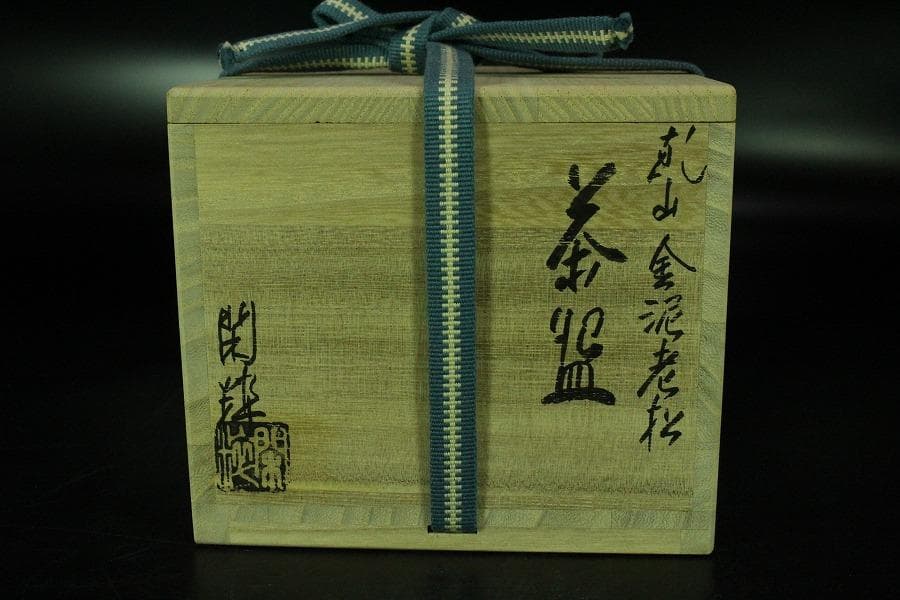 乾山 金泥老松
茶盌
閑